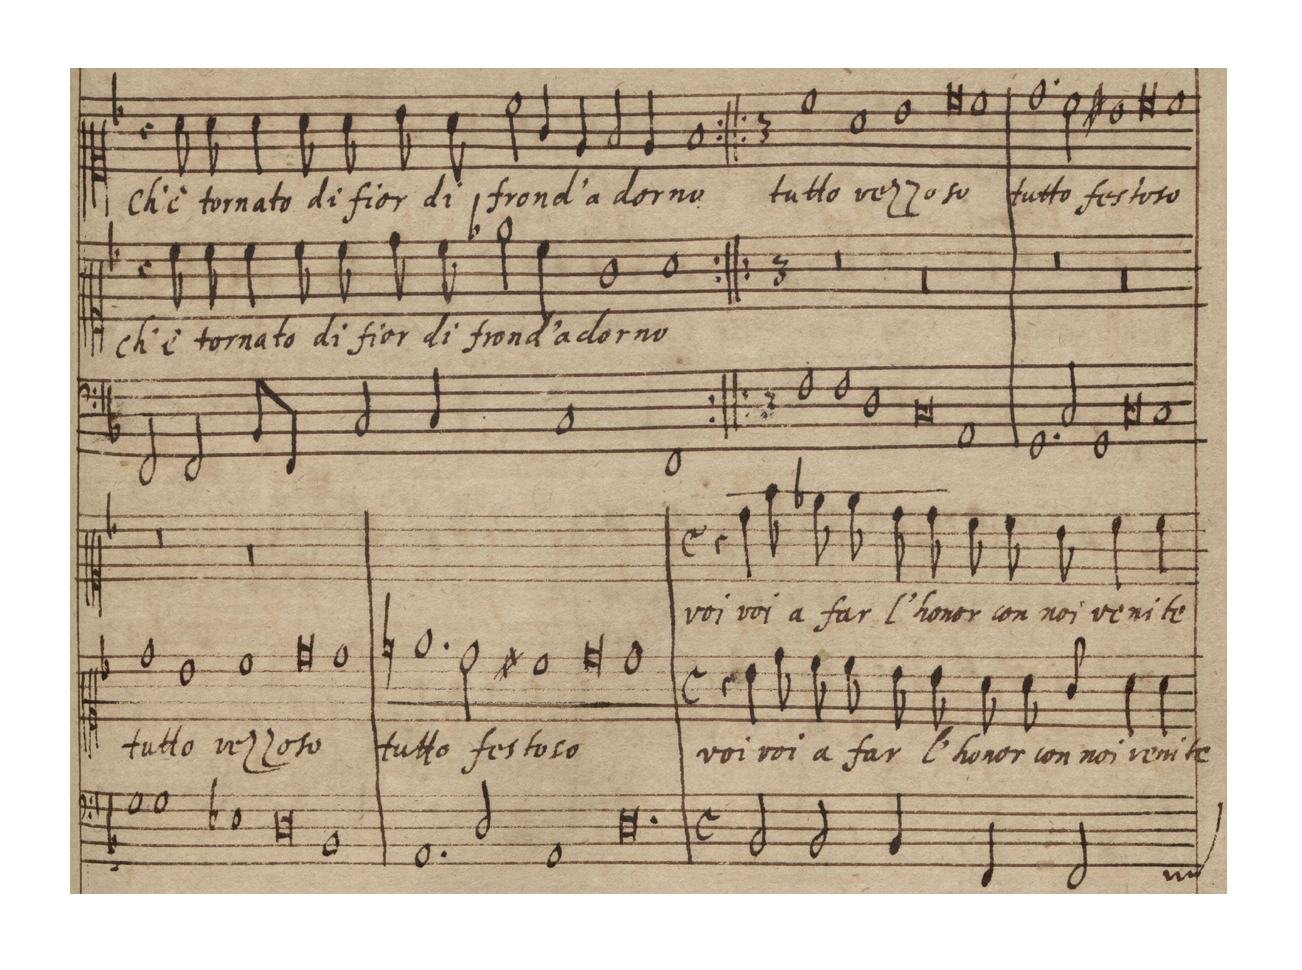 Ch'è tornato di fior di frond'a dorno tutto vezzoso tutto festoso
ch'è tornato di fior di frond'adorno
voi voi a far l'honor con noi venite
tutto vezzoso tutto festoso voi voi a far l'honor con noi venite